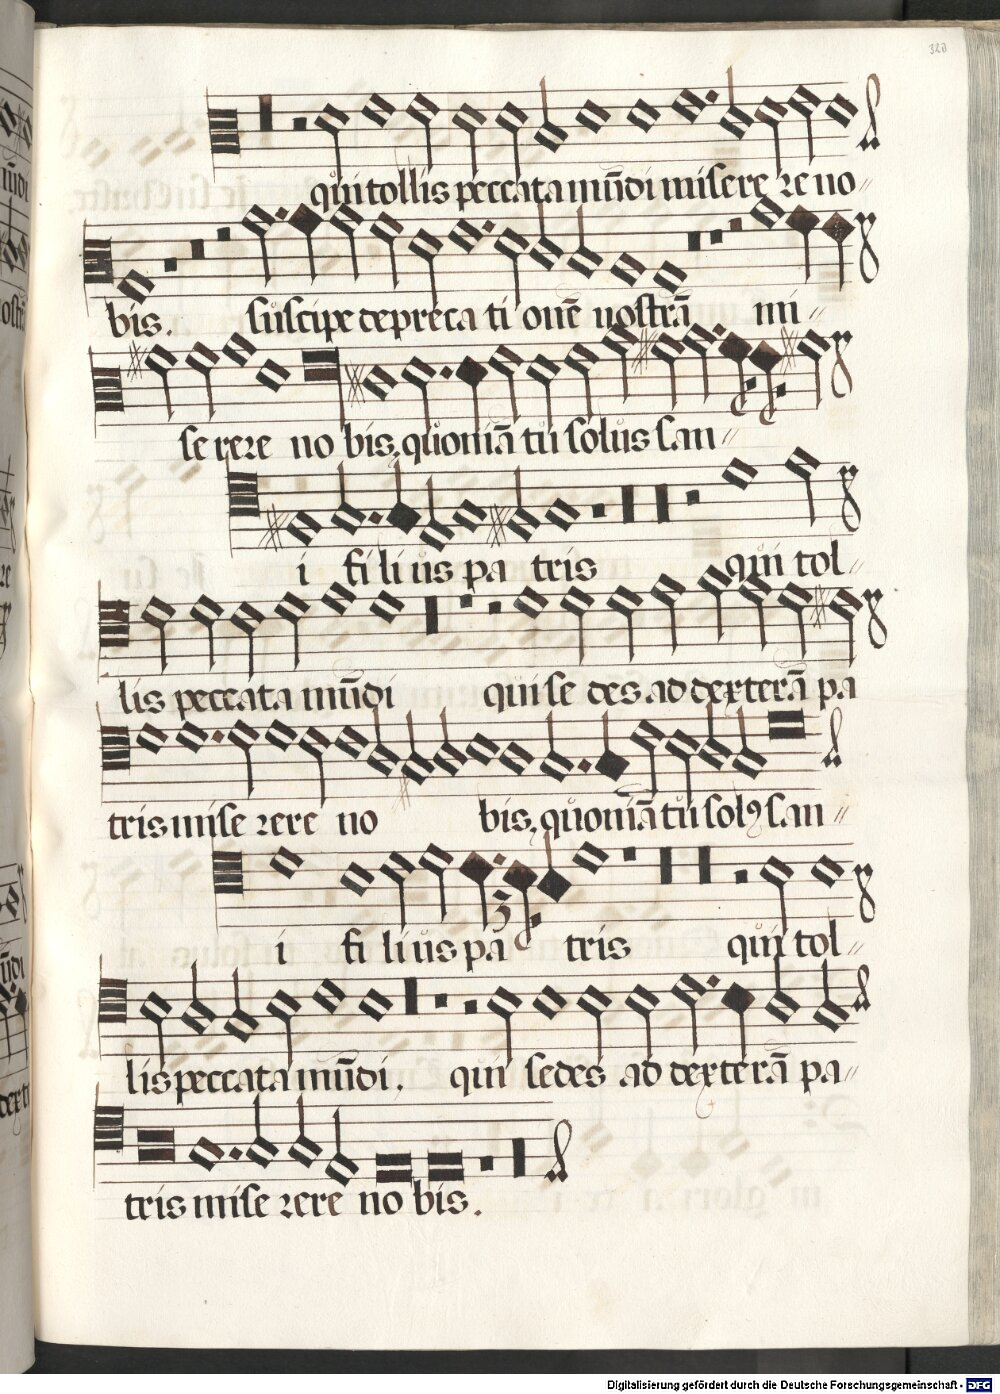 320
qui tollis peccata mūdi misere re no
bis. suscipe depreca ti onē nostrā mi
se rere no bis, quoniā tu solus san
i fi li us pa tris qui tol
lis peccata mūdi qui se des ad dexterā pa
tris mise rere no bis, quoniā tu solꝰ san
i fi li us pa tris qui tol
lis peccata mūdi. qui sedes ad dexterā pa
tris mise rere no bis.
Digitalisierung gefördert durch die Deutsche Forschungsgemeinschaft - DFG